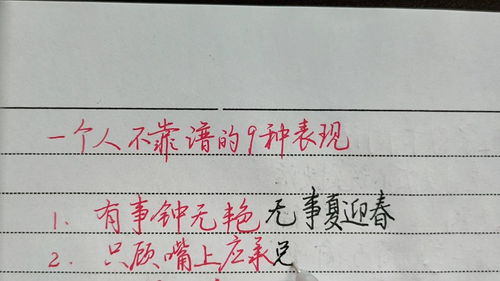 一个人不靠谱的9种表现
1. 有事钟无艳无事夏迎春
2. 只顾嘴上应承兑